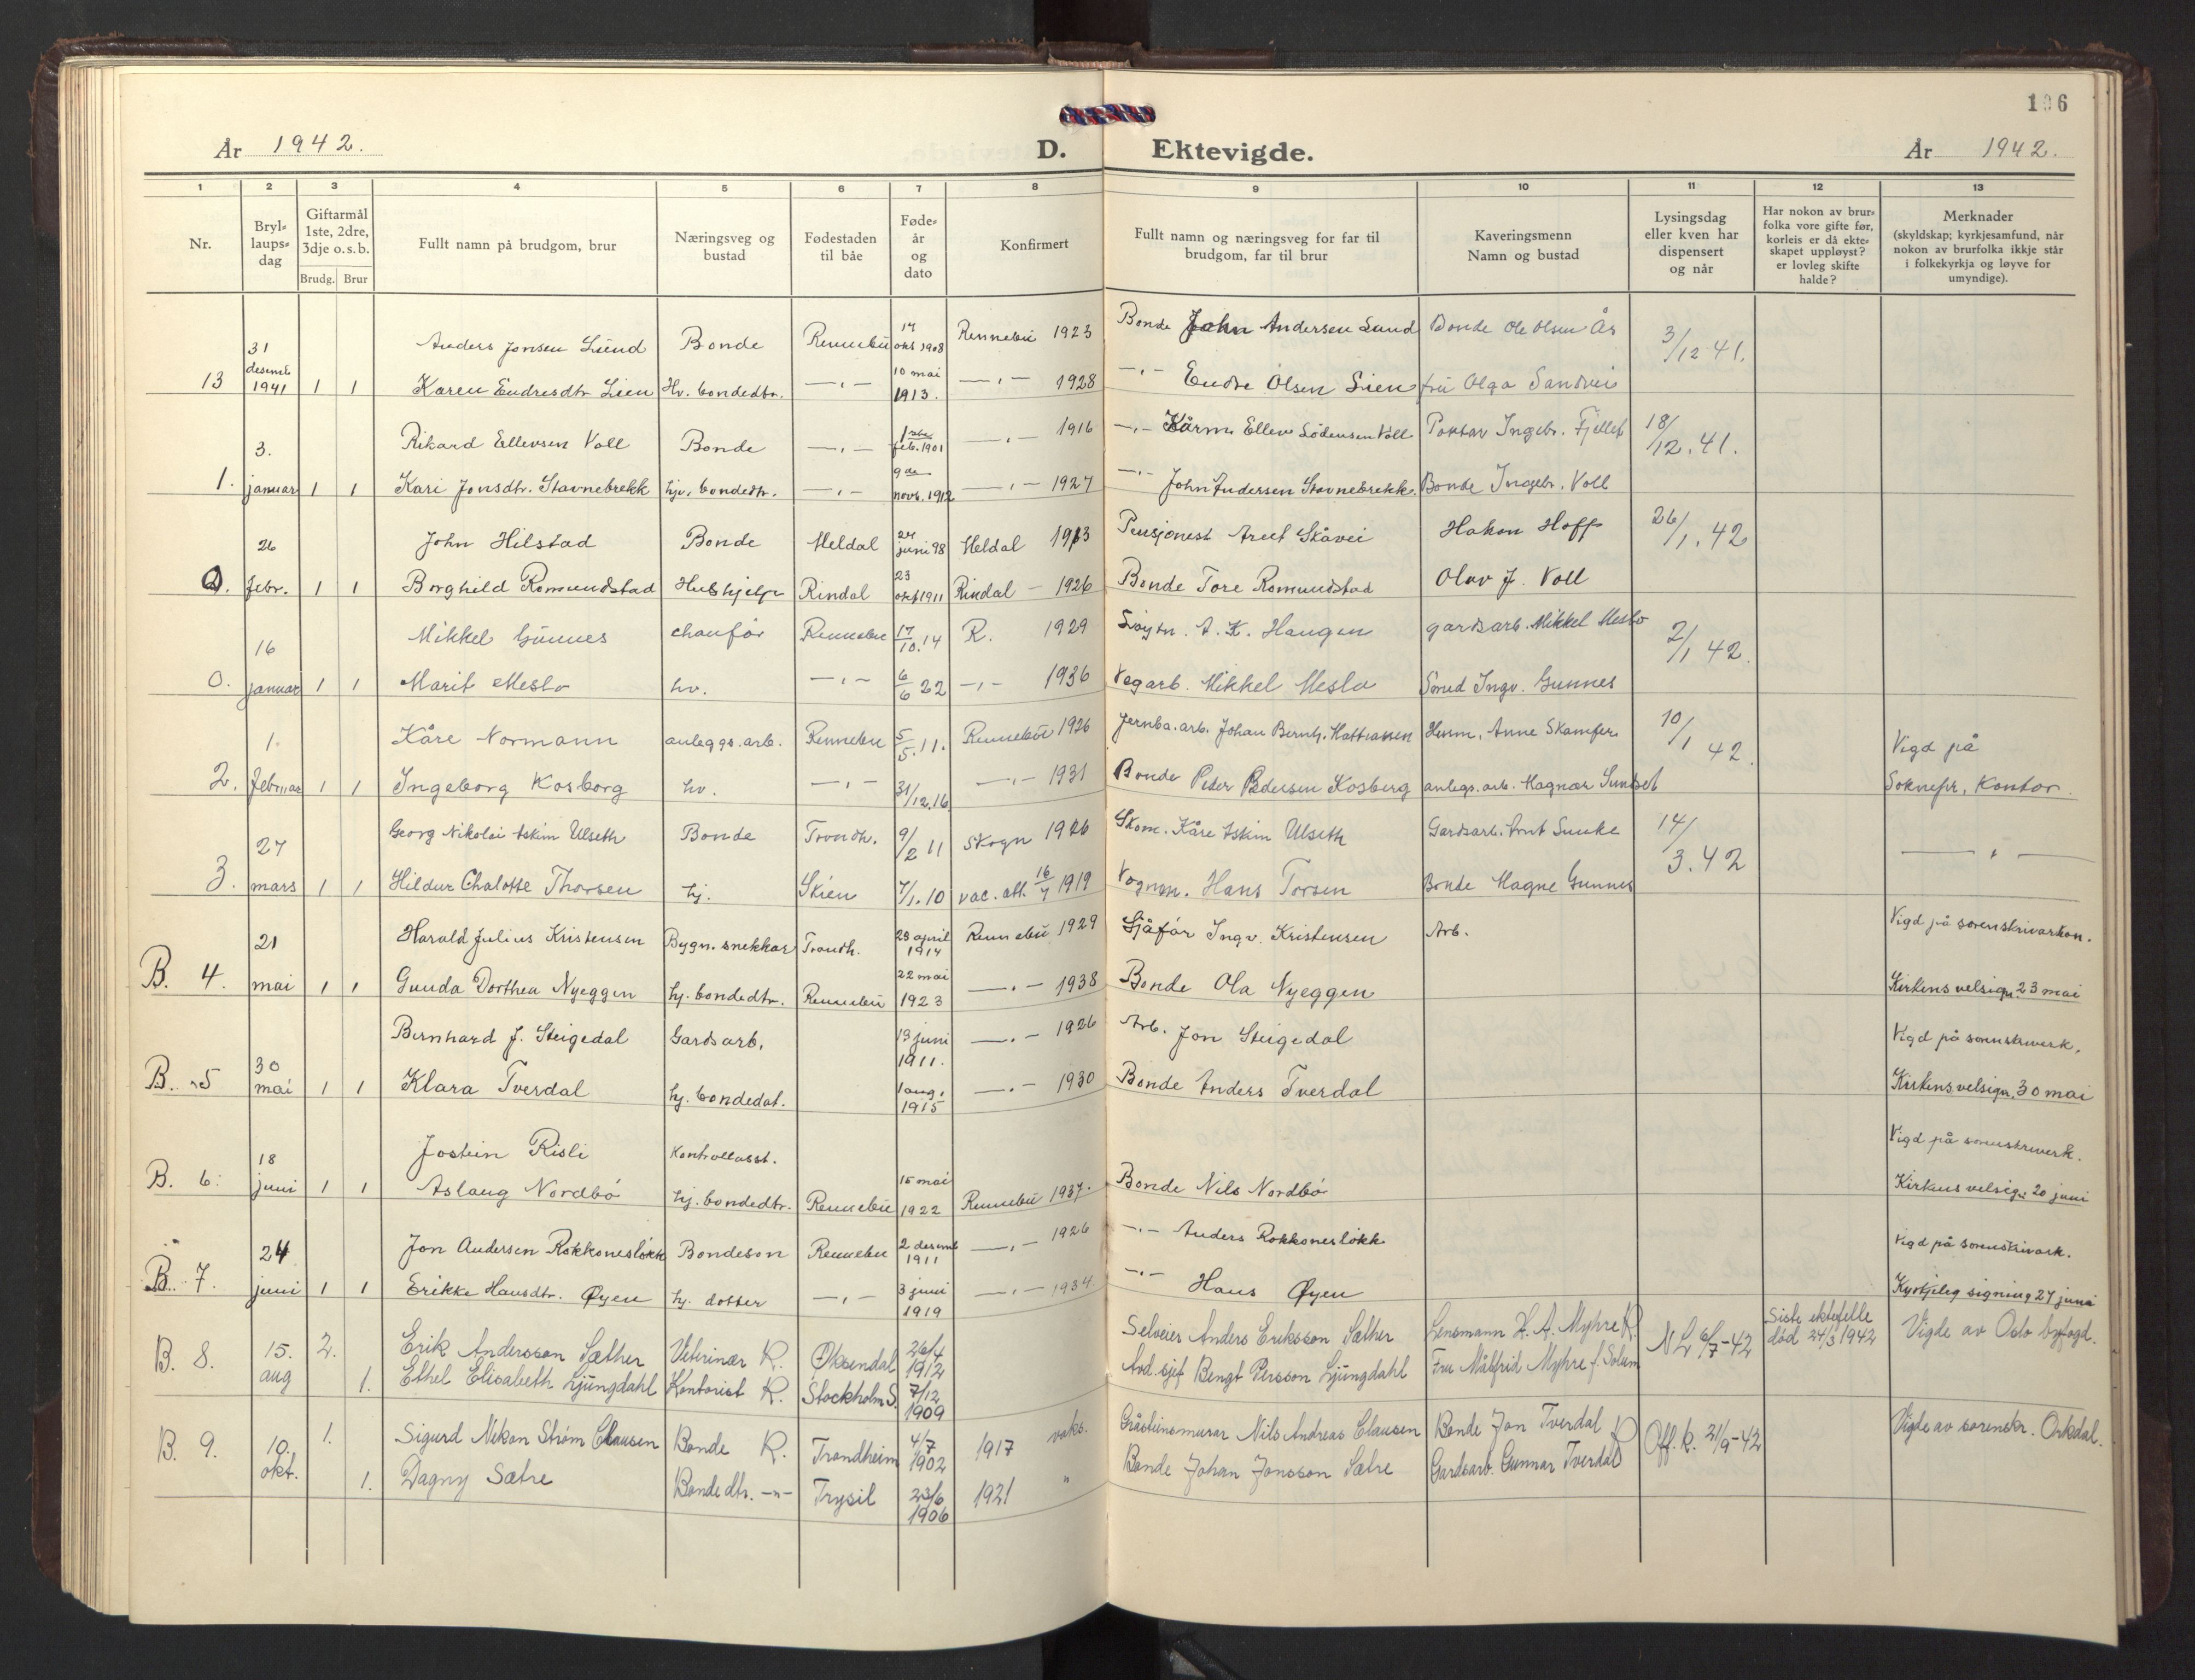 106
År 1942.
D. Ektevigde.
År 1942.
1 2 3 4 5 6 7 8 9 10 11 12 13
Nr.
Bryl-
laups-
dag
Giftarmål
1ste, 2dre,
3dje o.s.b.
Brudg. Brur
Fullt namn på brudgom, brur
Næringsveg og
bustad
Fødestaden
til båe
Føde-
år
og
dato
Konfirmert
Fullt namn og næringsveg for far til
brudgom, far til brur
Kaveringsmenn
Namn og bustad
Lysingsdag
eller kven har
dispensert
og når
Har nokon av brur-
folka vore gifte før,
korleis er då ekte-
skapet uppløyst?
er lovleg skifte
halde?
Merknader
(skyldskap; kyrkjesamfund, når
nokon av brurfolka ikkje står
i folkekyrkja og løyve for
umyndige).
31 Anders Jonsen Lund Bonde Rennebu 14 okt 1908 Rennebu 1923 Bonde John Andersen Lund Bonde Ole Olsen Ås 3/12 41.
13 desemb 1941 1 1 Karen Endresdtr Lien Hv. bondedtr. —"— 10 mai 1913. —"— 1928 —"— Endre Olsen Lien fru Olga Sandvei
3. Rikard Ellevsen Voll Bonde —"— 1ste feb. 1901 —"— 1916 —"— Kårm. Ellev Voll Ingebr. Fjellet 18/12.41.
1. januar 1 1 Kari Jonsdtr. Stavnebrekk hjv. bondedtr. —"— 9de novb. 1912 —"— 1927 —"— John Andersen Stavnebrekk. Bonde Ingebr. Voll
26 John Hilstad Bonde Meldal 24 juni 98 Meldal 1913 Pensjonist Arnt Skåvei Hakon Hoff 26/1.42
2. febr. 1 1 Borghild Romundstad Hushjelp Rindal 23 okt 1911 Rindal — 1926 Bonde Tore Romundstad Olav J. Voll
16 Mikkel Gunnes chauför Rennebu 17/10.14 R. 1929 Løytn. A. K. Haugen gardsarb. Mikkel Meslo 2/1 42.
0. januar 1 1 Marit Meslo hv. —"— 6/6 22 —"— 1936 Vegarb. Mikkel Meslo Smed Ingv. Gunnes
1. Kåre Normann anleggs.arb. Rennebu 5/5.11. Rennebu 1926 Jernba.arb. Johan Bernh. Herm. Anne Skamfer 10/1 42. Vigd på
2. februar 1 1 Ingeborg Kosberg hv. —"— 31/12.16 —"— 1931 Bonde Peder Pedersen Kosberg anlegs.arb. Magnar Sundset Soknepr. Kontor.
27 Georg Nikolai Askim Ulseth Bonde Trondh. 9/2 11 Skogn 1926 Skom. Kåre Askim Ulseth Gardsarb. Arnt 14/3.42 —"—
3. mars 1 1 Hildur Chalotte Thorsen hj. Skien 7/1.10 vac. att. 16/7 1919 Vognm. Hans Torsen Bonde Magne Gunnes
21 Harald Julius Kristensen Bygn.snekkar Trondh. 28 april 1914 Rennebu 1929 Sjåför Ingv. Kristensen Arb. Vigd på sorenskrivarkon.
B. 4. mai 1 1 Gunda Dorthea Nyeggen hj. bondedtr. Rennebu 22 mai 1923 —"— 1938 Bonde Ola Nyeggen Kirkens velsign. 23 mai
Bernhard J. Steigedal Gardsarb. 13 juni 1911. —"— 1926 Arb. Jon Steigedal Vigd på sorenskrivark.
B. 5 30 mai 1 1 Klara Tverdal hj. bondedat. 1 aug. 1915 —"— 1930 Bonde Anders Tverdal Kirkens velsign. 30 mai
18 Jostein Risli Kontrollasst. Vigd på sorenskrivark.
B. 6. juni 1 1 Aslaug Nordbö hj. bondedtr. Rennebu 15 mai 1922 Rennebu 1937. Bonde Nils Nordbö Kirkens velsign. 20 juni
24 Jon Andersen Rokkonesløkk Bondeson Rennebu 2 desemb 1911 —"— 1926 —"— Anders Rokkonesløkk Vigd på sorenskrivark.
B. 7. juni 1 1 Erikke Hansdtr. Øyen hj. dotter —"— 3 juni 1919 —"— 1934. —"— Hans Øyen Kyrkjeleg signing 27 juni
B. 8. 15. 2. Erik Andersson Sæther Veterinær R. Øksendal 26/4 1912 Selveier Anders Eriksson Sæther Lensmann H. A. Myhre R. NL 6/7-42 Siste ektefelle død 24/3 1942 Vigde av Oslo byfogd.
aug 1. Ethel Elisabeth Ljungdahl Kontorist R. Stockholm S. 7/12 1909 Avd. sjef Bengt Persson Ljungdahl Fru Målfrid Myhre f. Solem
B. 9. 10. 1. Sigurd Nikan Strøm Clausen Bonde R. Trondheim 4/7 1902 1917 vaks. Gråsteinsmurar Nils Andreas Clausen Bonde Jon Tverdal R Off. k. 21/9-42 Vigde av sorenskr. Orkdal.
okt. 1. Dagny Sætre Bondedtr. —"— Trysil 23/6 1906 1921 " Bonde Johan Jonsson Sætre Gardsarb. Gunnar Tverdal